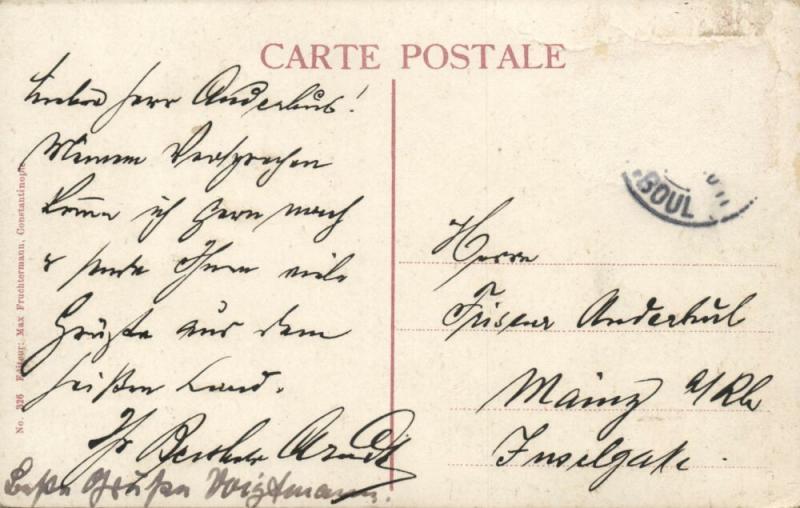 CARTE POSTALE
Lieber Herr Anderhub!
Meinem Versprechen
komme ich gern nach
& sende Ihnen viele
Grüße aus dem
heißen Land.
Ihr Arndt
Beste Grüße Voigtmann.
BOUL
Herrn
Friseur Anderhub
Mainz a/Rh
Inselgaße.
No. 326 Editeur: Max Fruchtermann, Constantinople